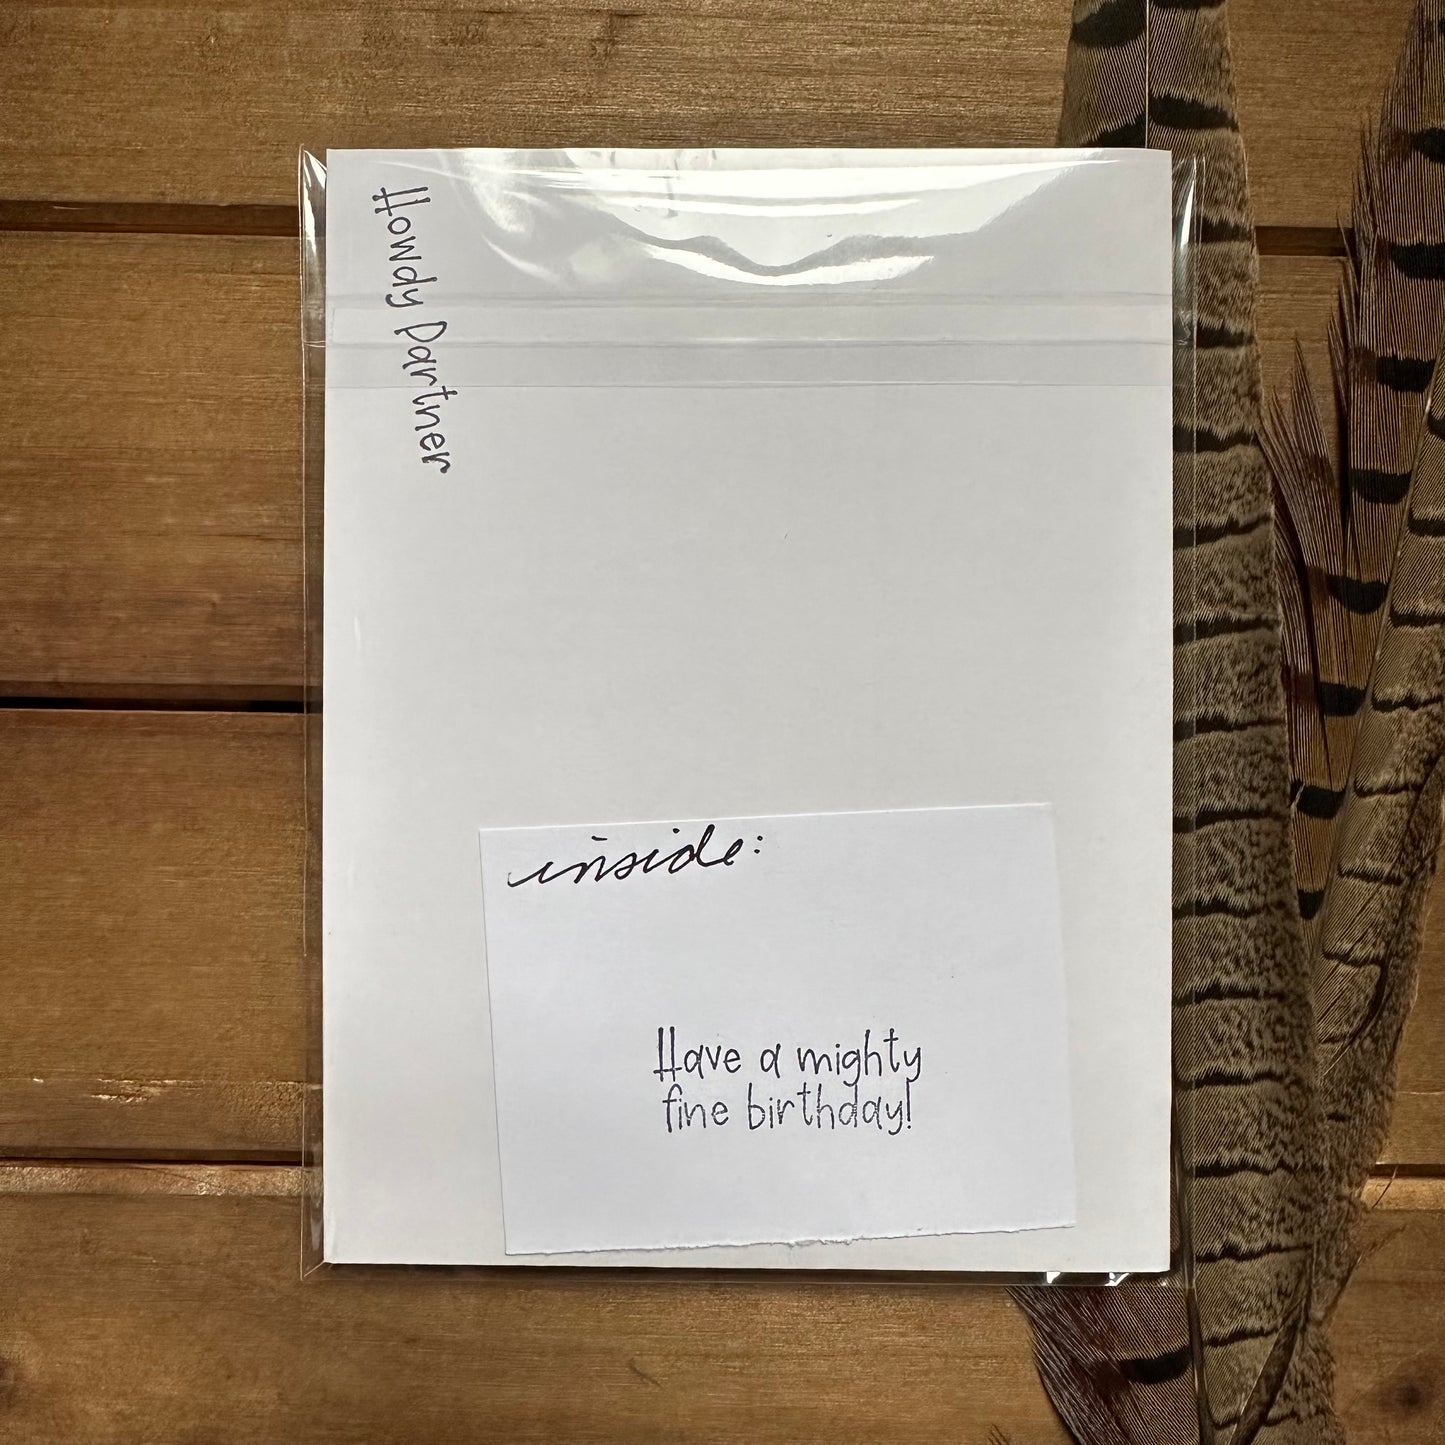 Howdy Partner
inside:
Have a mighty
fine birthday!